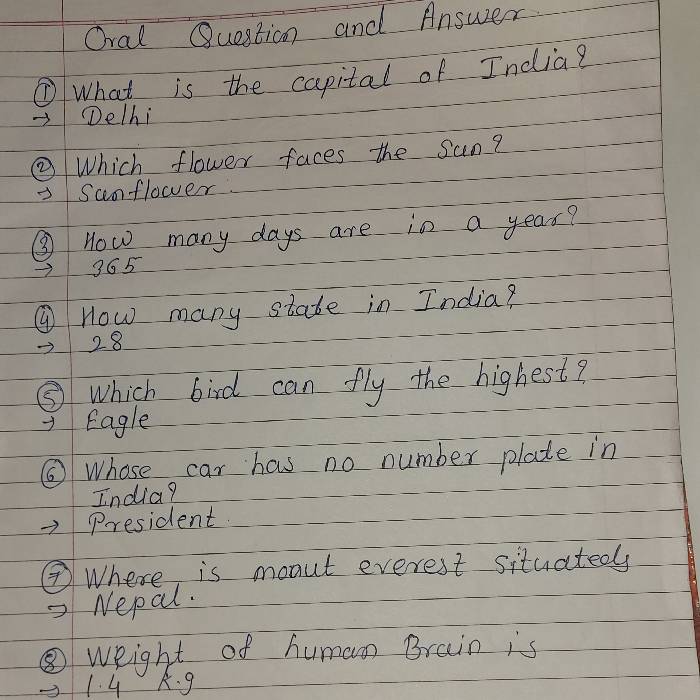 Oral Question and Answer
① What is the capital of India?
→ Delhi
② Which flower faces the Sun?
→ Sunflower.
③ How many days are in a year?
→ 365
④ How many state in India?
→ 28
⑤ Which bird can fly the highest?
→ Eagle
⑥ Whose car has no number plate in
India?
→ President.
⑦ Where is mount everest situated?
→ Nepal.
⑧ Weight of human Brain is
→ 1.4 K.g